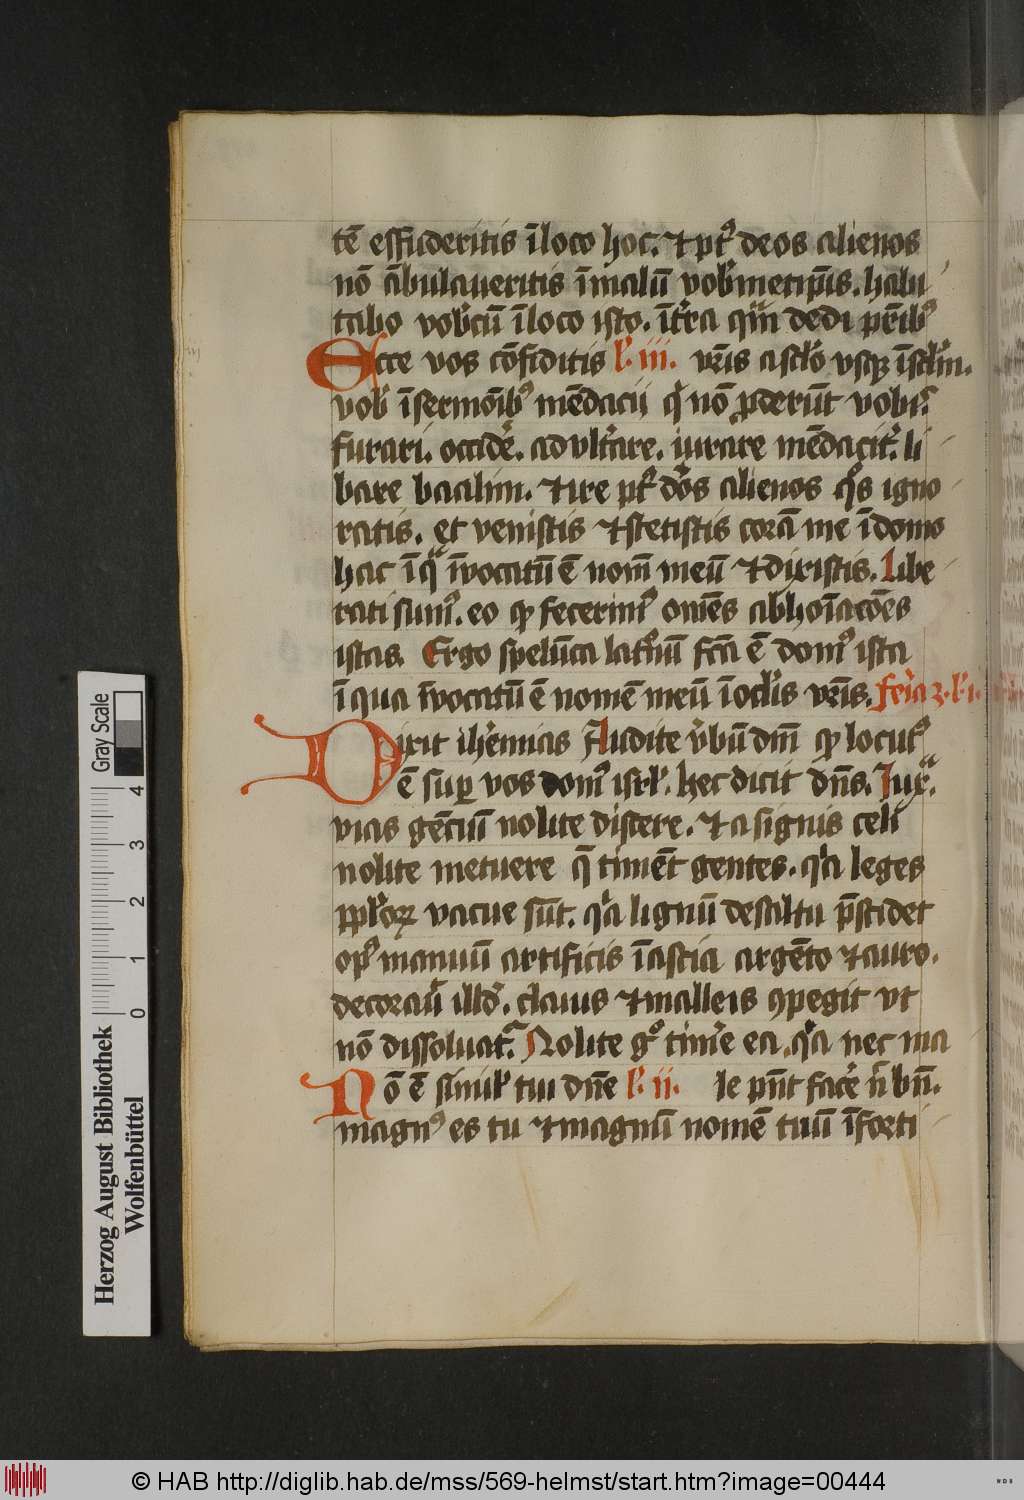 tē effuderitis ī loco hoc. ⁊ pt᷒ deos alienos
nō ābulaueritis ī malū vob̄metip̄is. habi
tabo vob̄cū ī loco isto. īt̄ra qm̄ dedi pr̄ib᷒
Ecce vos cōfiditis l̄. iii. vr̄is a sc̄lo vsqꝫ ī sc̄lm.
vob̄ ī sermōib᷒ mēdacii q̄ nō ꝓderūt vobis
furari. occidē. adult̄are. iurare mēdacit̄. li
bare baalim. ⁊ ire pt᷒ deos alienos q̊s igno
ratis. et venistis ⁊ stetistis corā me ī domo
hac ī qᵃ īvocatū ē nom̄ meū ⁊ dixistis. Libe
rati sum᷒. eo ꝙ fecerim᷒ om̄es abhoīacōes
istas. Ergo spelūca latᵒnū fc̄a ē dom᷒ ista
ī qua īvocatū ē nomē meū ī oc̄lis vr̄is. fer̄ia 3. l̄. i.
Dixit ih̄emias Audite v̄bū dn̄i ꝙ locut᷒
ē suꝑ vos dom᷒ isrl̄. hec dicit dn̄s. Iuxᵃ.
vias gēciū nolite discere. ⁊ a signis celi
nolite metuere q̄ timēt gentes. qⁱa leges
ppl̄oꝝ vacue sūt. qⁱa lignū de saltu p̄scidet
op᷒ manuū artificis ī ascia argēto ⁊ auro.
decorauī illd̄. clauis ⁊ malleis ꝯpegit vt
nō dissoluat᷑. Nolite gᵒ timē̄ ea qⁱa nec ma
Nō ē simil̄ tui dn̄e l̄. ii. le pn̄t facē n̄ bn̄.
magn᷒ es tu ⁊ magnū nomē tuū ī forti
Gray Scale
0 1 2 3 4
Herzog August Bibliothek
Wolfenbüttel
© HAB http://diglib.hab.de/mss/569-helmst/start.htm?image=00444